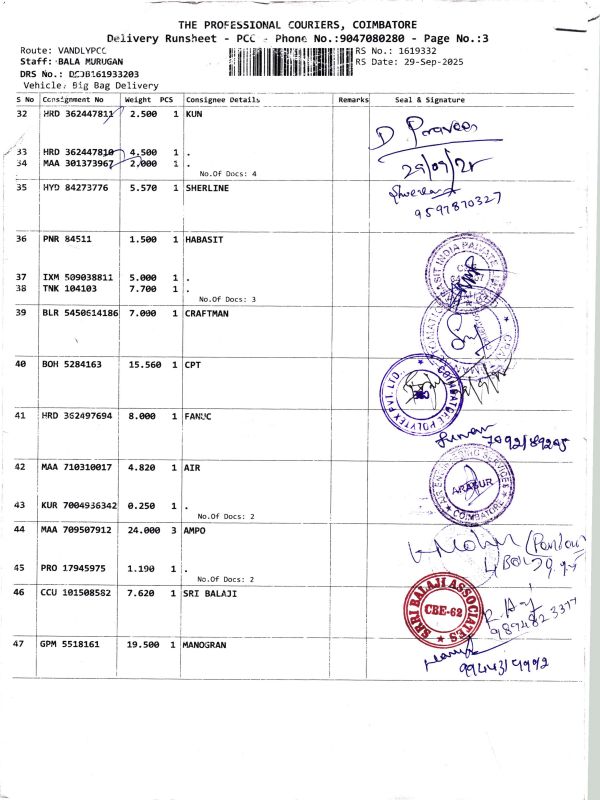 THE PROFESSIONAL COURIERS, COIMBATORE
Delivery Runsheet - PCC - Phone No.:9047080280 - Page No.:3
Route: VANDLYPCC RS No.: 1619332
Staff: BALA MURUGAN RS Date: 29-Sep-2025
DRS No.: DCOB161933203
Vehicle: Big Bag Delivery
S No Consignment No Weight PCS Consignee Details Remarks Seal & Signature
32 HRD 362447811 2.500 1 KUN
D Praveen
33 HRD 362447810 4.500 1 .
34 MAA 301373967 2.000 1 .
29/09/25
No.Of Docs: 4
35 HYD 84273776 5.570 1 SHERLINE
9597870327
36 PNR 84511 1.500 1 HABASIT
37 IXM 509038811 5.000 1 .
38 TNK 104103 7.700 1 .
No.Of Docs: 3
39 BLR 5450614186 7.000 1 CRAFTMAN
40 BOH 5284163 15.560 1 CPT
COIMBATORE POLYTEX PVT. LTD.
41 HRD 362497694 8.000 1 FANUC
42 MAA 710310017 4.820 1 AIR
AIR ENGINEERING SERVICES
ARASUR
COIMBATORE
43 KUR 7004936342 0.250 1 .
No.Of Docs: 2
44 MAA 709507912 24.000 3 AMPO
45 PRO 17945975 1.190 1 .
No.Of Docs: 2
46 CCU 101508582 7.620 1 SRI BALAJI
SRRI BALAJI ASSOCIATES
CBE-62
47 GPM 5518161 19.500 1 MANOGRAN